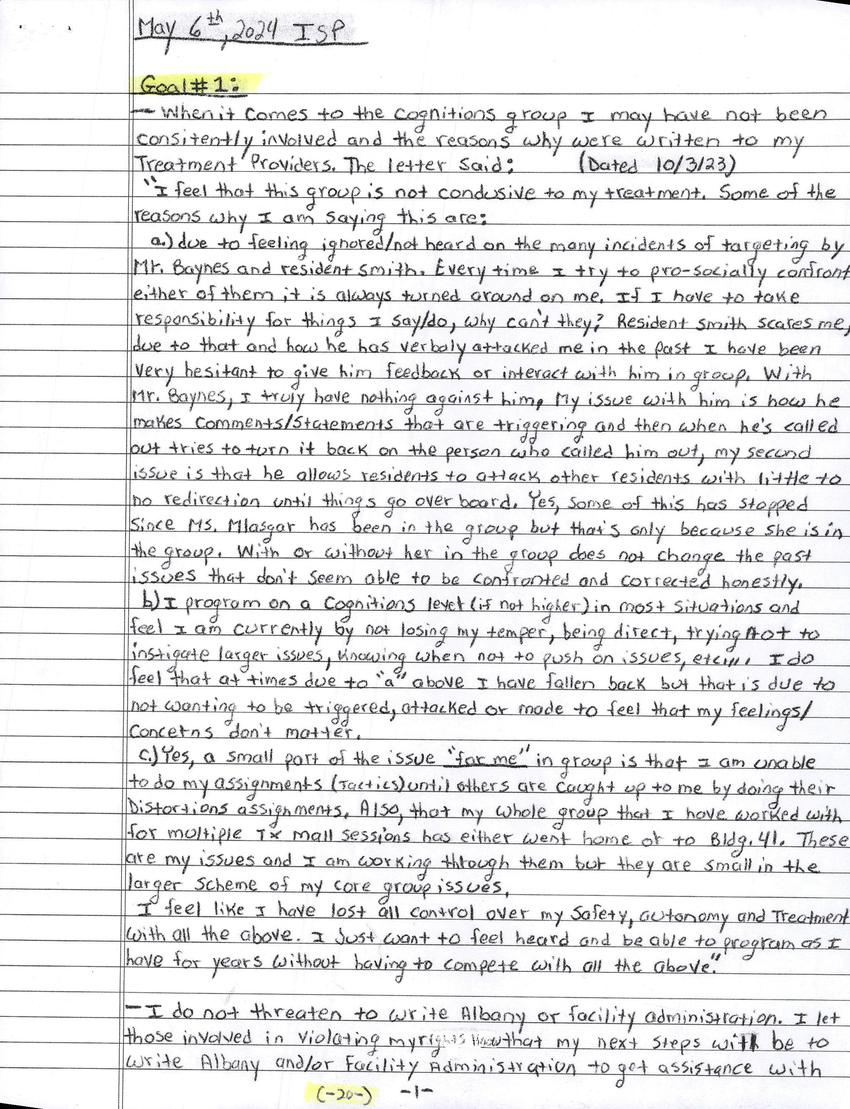 May 6th, 2024 ISP
Goal #1:
— When it comes to the cognitions group I may have not been
consitently involved and the reasons why were written to my
Treatment Providers. The letter said: (Dated 10/3/23)
"I feel that this group is not condusive to my treatment. Some of the
reasons why I am saying this are:
a.) due to feeling ignored/not heard on the many incidents of targeting by
Mr. Baynes and resident Smith. Every time I try to pro-socially confront
either of them it is always turned around on me. If I have to take
responsibility for things I say/do, why can't they? Resident Smith scares me,
due to that and how he has verbaly attacked me in the past I have been
very hesitant to give him feedback or interact with him in group. With
Mr. Baynes, I truly have nothing against him, My issue with him is how he
makes comments/statements that are triggering and then when he's called
out tries to turn it back on the person who called him out, my second
issue is that he allows residents to attack other residents with little to
no redirection until things go over board. Yes, some of this has stopped
since Ms. Mlasgar has been in the group but that's only because she is in
the group. With or without her in the group does not change the past
issues that don't seem able to be confronted and corrected honestly.
b) I program on a Cognitions level (if not higher) in most situations and
feel I am currently by not losing my temper, being direct, trying not to
instigate larger issues, knowing when not to push on issues, etc.... I do
feel that at times due to "a" above I have fallen back but that is due to
not wanting to be triggered, attacked or made to feel that my feelings/
concerns don't matter.
c.) Yes, a small part of the issue "for me" in group is that I am unable
to do my assignments (Tactics) until others are caught up to me by doing their
Distortions assignments. Also, that my whole group that I have worked with
for multiple Tx mall sessions has either went home or to Bldg. 41. These
are my issues and I am working through them but they are small in the
larger scheme of my core group issues.
I feel like I have lost all control over my safety, autonomy and Treatment
with all the above. I Just want to feel heard and be able to program as I
have for years without having to compete with all the above."
— I do not threaten to write Albany or facility administration. I let
those involved in violating my rights know that my next steps will be to
write Albany and/or Facility Administration to get assistance with
(-20-) -1-